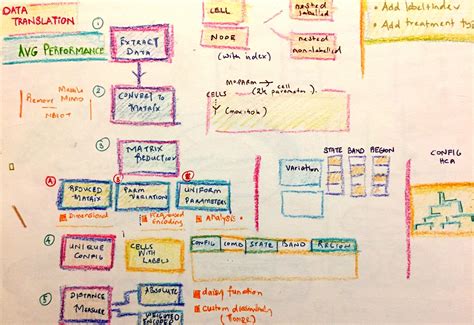 DATA
TRANSLATION
AVG PERFORMANCE
①
EXTRACT
DATA
CELL
nested
labelled
NODE
(with index)
nested
non-labelled
• Add label+index
• Add treatment
Remove
MIMO
NBIOT
②
CONVERT TO
MATRIX
MOPARM
cell
CELLS
③
MATRIX
REDUCTION
STATE BAND REGION
Variation
CONFIG
HCA
Ⓐ
REDUCED
MATRIX
PARM
VARIATION
UNIFORM
PARAMETERS
Dimensional
Encoding
Analysis
④
UNIQUE
CONFIG
CELLS
WITH
LABELS
CONFIG COMB STATE BAND REGION
⑤
DISTANCE
MEASURE
ABSOLUTE
WEIGHTED
ENCODED
daisy function
Custom dissimilarity